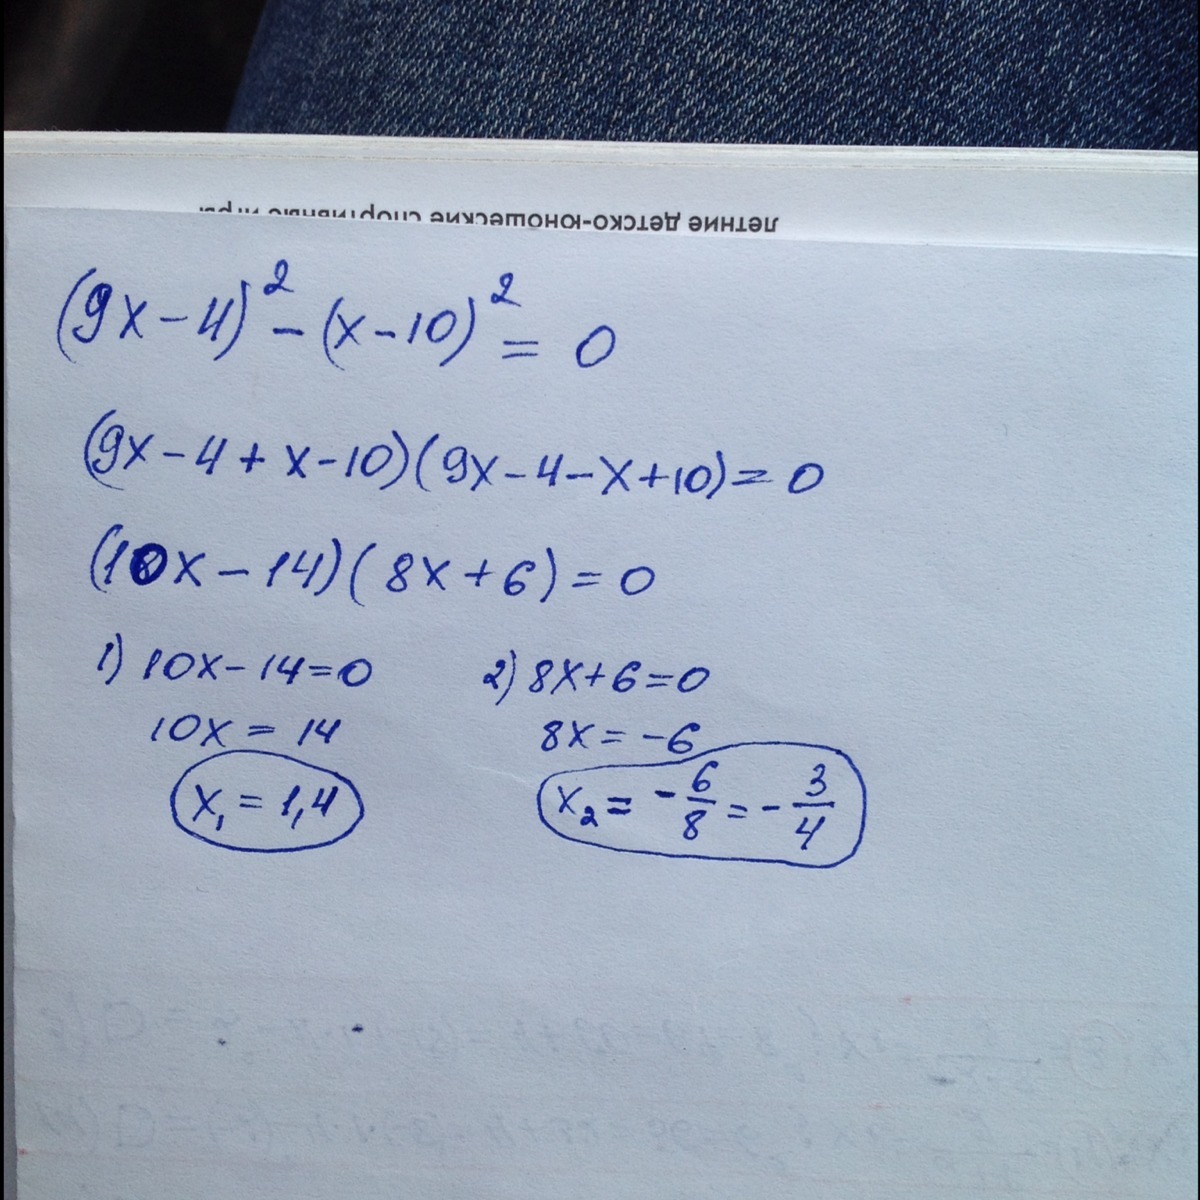 летние детско-юношеские спортивные игры
(9x-4)² - (x-10)² = 0
(9x-4+x-10)(9x-4-x+10)=0
(10x-14)(8x+6)=0
1) 10x-14=0
10x = 14
x₁ = 1,4
2) 8x+6=0
8x = -6
x₂ = -6/8 = -3/4